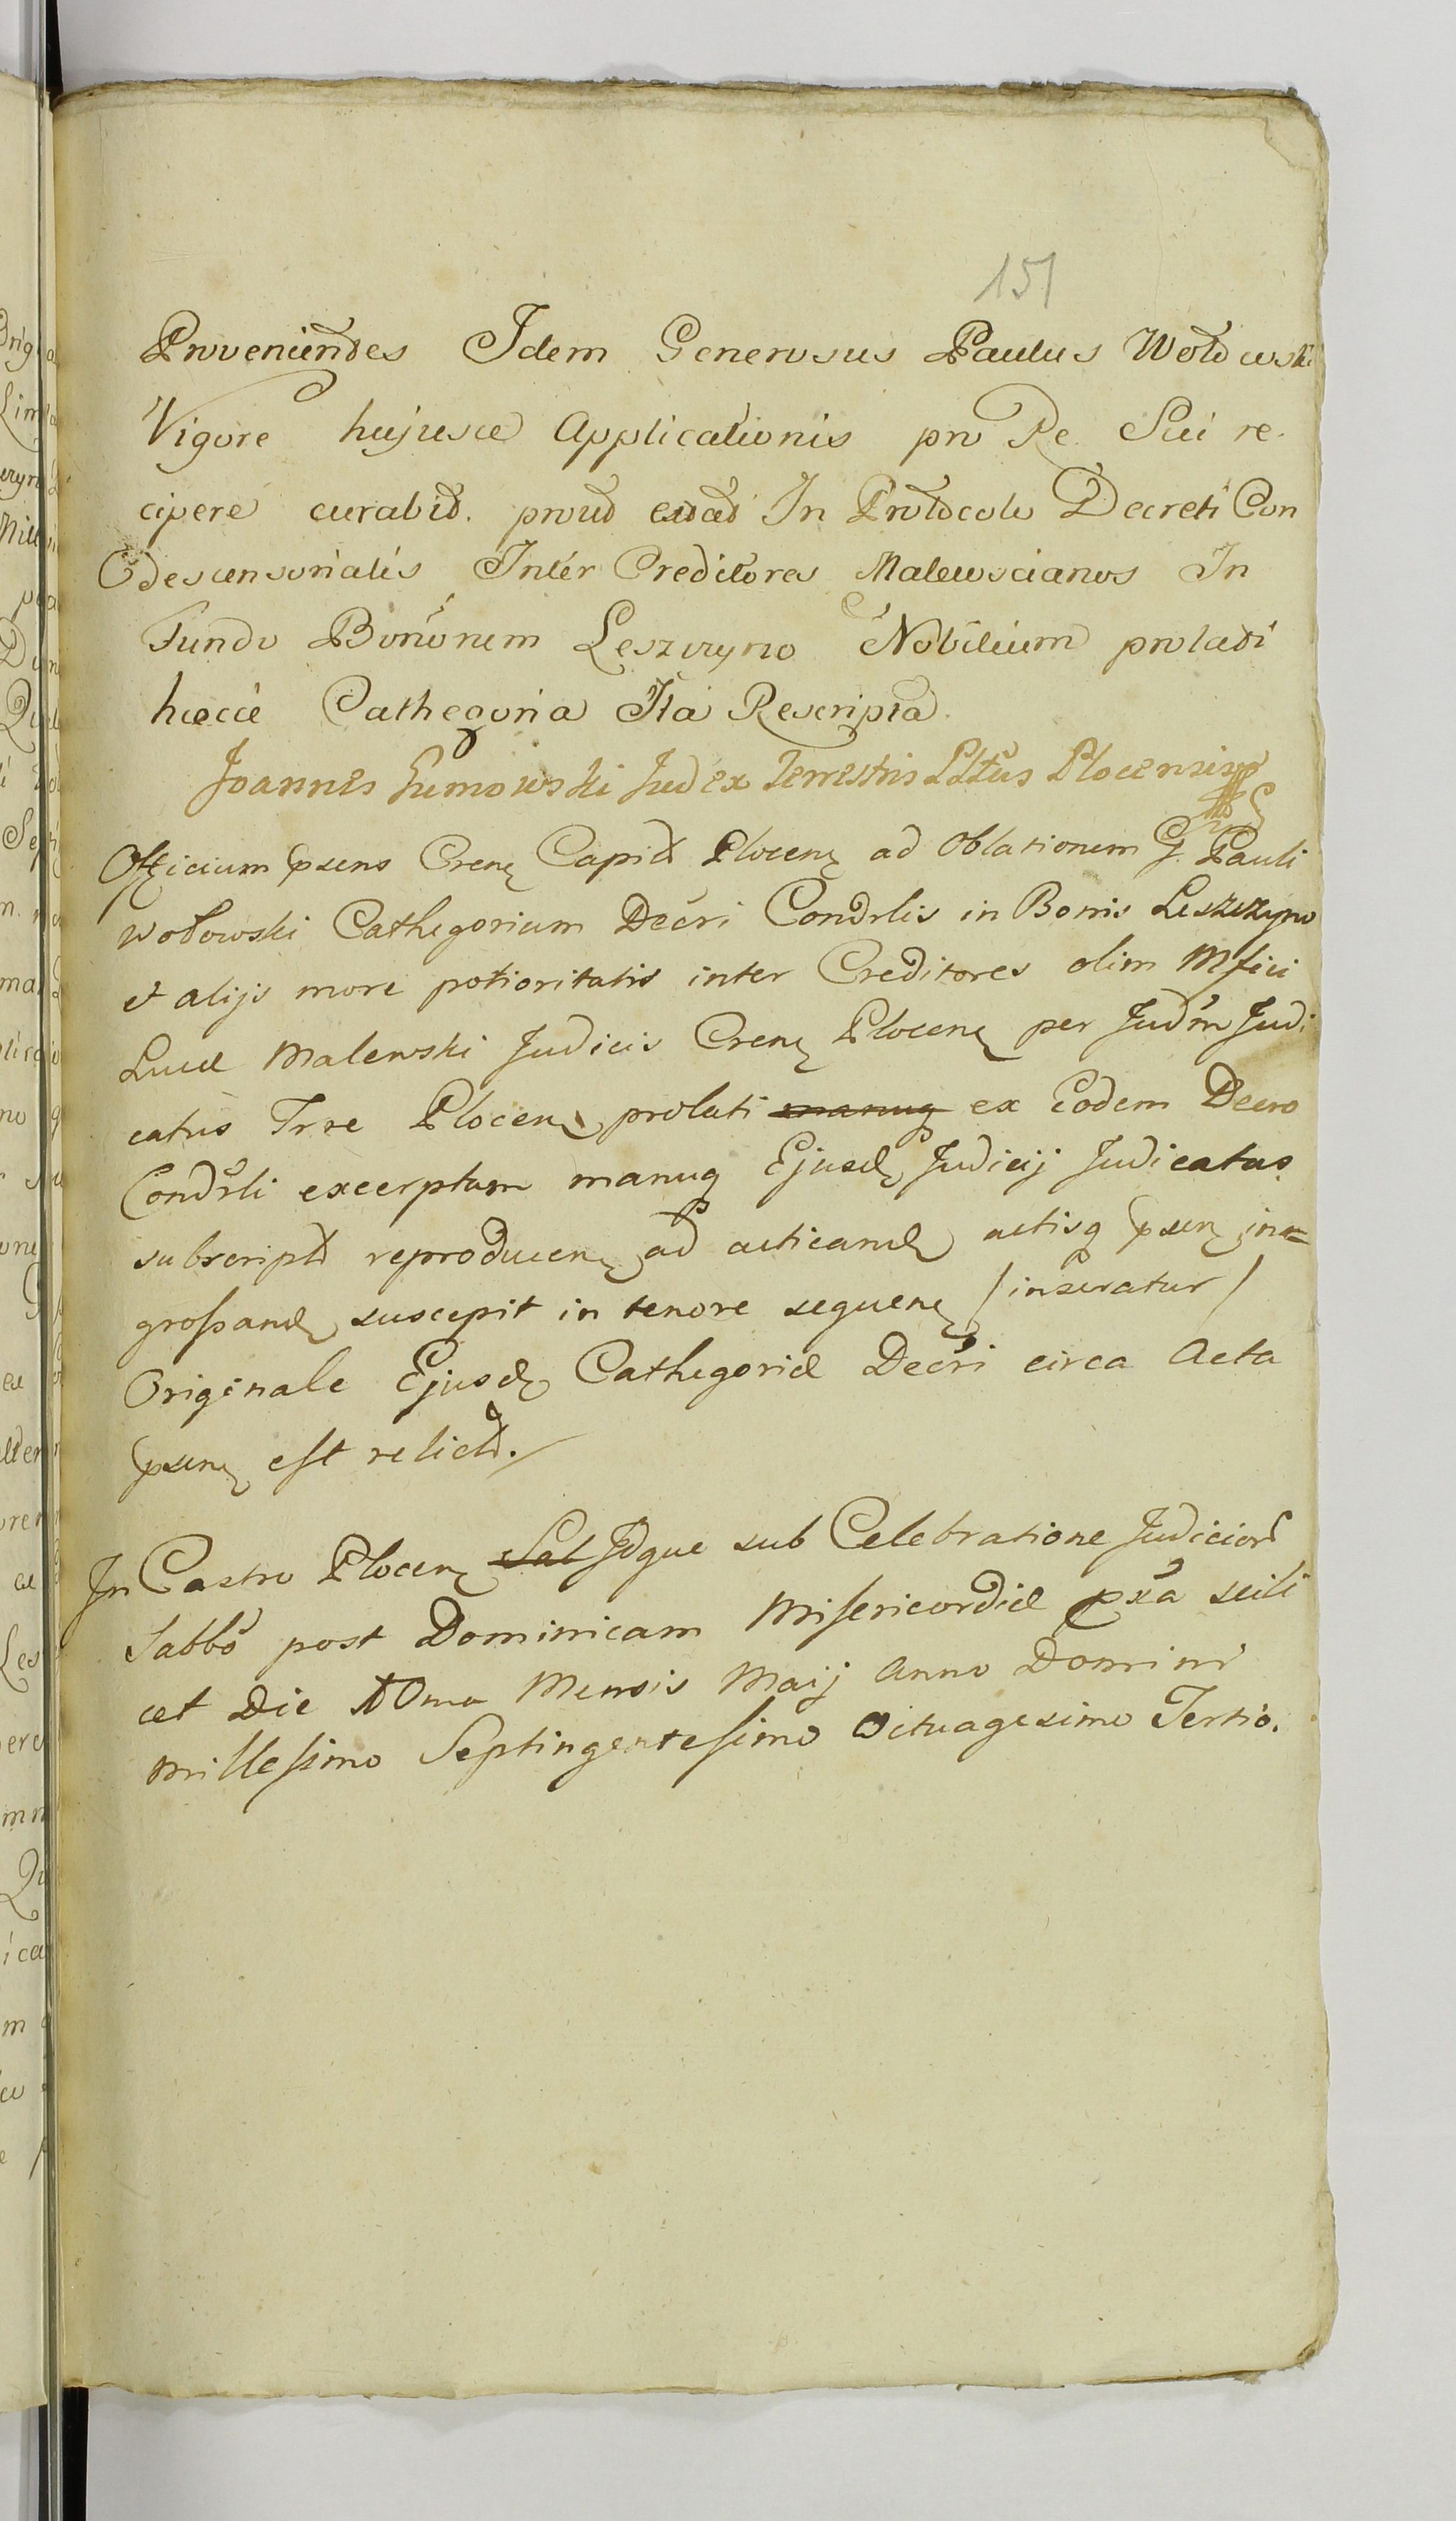 151
Provenientes Idem Generosus Paulus Wołowski
Vigore hujusce Applicationis pro Re Sui re-
cipere curabit. prout extat In Protocolo Decreti Con
descensorialis Inter Creditores Malewscianos In
Fundo Bononem Leszczyno Nobilium prolati
haecce Cathegoria Ita Rescripta.
Joannes Gumowski Judex Terrestris Pltus Plocensis
Officium psens Crenę Capitł Plocenę ad Oblationem G. Pauli
Wołowski Cathegoriam Decri Condrlis in Bonis Leszczyno
et alijs more potioritatis inter Creditores olim Mfici
Lucæ Malewski Judicis Crenę Plocenę per Judm Judi
catus Trre Plocenę prolati manuq ex Eodem Decro
Condrli excerptam manuq Ejusdę Judicij Judicatus
subscript reproducenę ad acticandę actisq psenę in-
grossandę suscepit in tenore sequenę /inseratur/
Originale Ejusdę Cathegoriæ Decri circa Acta
psenę est relict./
In Castro Plocenę Sab Idque sub Celebratione Judicior
Sabbo post Dominicam Misericordiæ pxa scili
cet Die 10ma Mensis Maij Anno Domini
Millesimo Septingentesimo Octuagesimo Tertio.